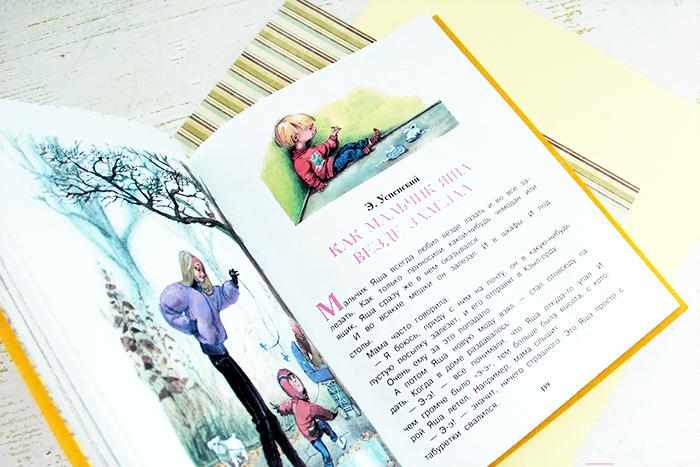 Э. Успенский
КАК МАЛЬЧИК ЯША
ВЕЗДЕ ЗАЛЕЗАЛ
Мальчик Яша всегда любил везде лазать и во всё за-
лезать. Как только приносили какой-нибудь чемодан или
ящик, Яша сразу же в нём оказывался.
И во всякие мешки он залезал. И в шкафы. И под
столы.
Мама часто говорила:
— Я боюсь, приду с ним на почту, он в какую-нибудь
пустую посылку залезет, и его отправят в Кзыл-Орду.
Очень ему за это попадало.
А потом Яша новую моду взял — стал отовсюду па-
дать. Когда в доме раздавалось:
— Э-э! — все понимали, что Яша откуда-то упал. И
чем громче было «э-э», тем больше была высота, с кото-
рой Яша летел. Например, мама слышит:
— Э-э! — значит, ничего страшного. Это Яша просто с
табуретки свалился.